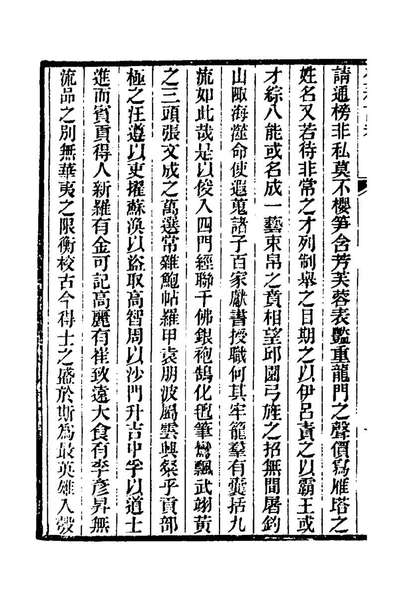 請通榜非私莫不櫻筍含芳芙蓉表豔重龍門之聲價寫雁塔之
姓名又若待非常之才列制舉之目期之以伊呂責之以霸王或
才綜八能或名成一藝束帛之賁相望邱園弓旌之招無間屠釣
山陬海澨命使遐蒐諸子百家獻書授職何其牢籠羣有囊括九
流如此哉是以俊入四門經聯千佛銀袍鵠化氊筆鸞飄武翊黃
之三頭張文成之萬選常雜鮑帖羅甲袁朋波屬雲興粲乎貢部
極之汪遵以吏擢蘇渙以盜取高智周以沙門升吉中孚以道士
進而賓貢得人新羅有金可記高麗有崔致遠大食有李彥昇無
流品之別無華夷之限衡校古今得士之盛於斯爲最英雄入彀